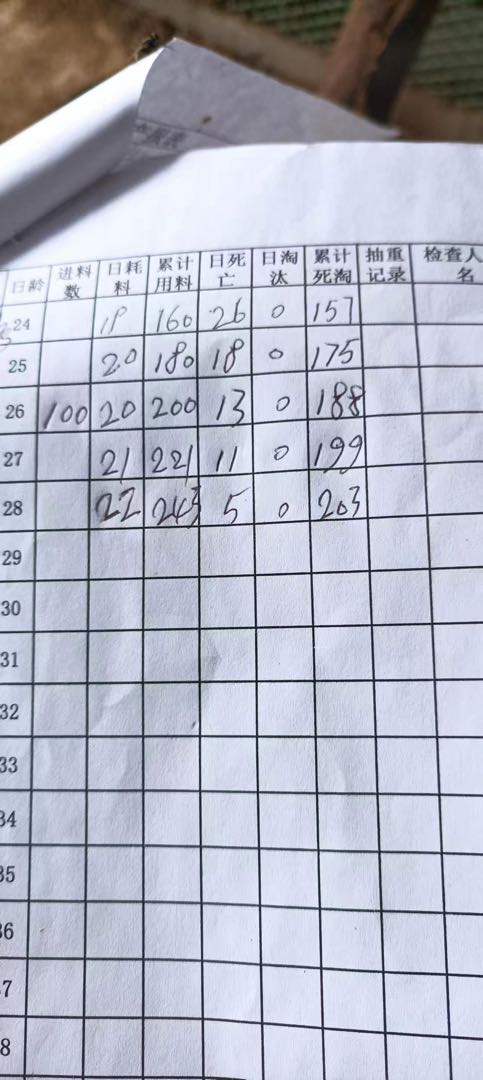 日龄 进料数 日耗料 累计用料 日死亡 日淘汰 累计死淘 抽重记录 检查人名
24 18 160 26 0 157
25 20 180 18 0 175
26 100 20 200 13 0 188
27 21 221 11 0 199
28 22 243 5 0 203
29
30
31
32
33
34
35
36
7
8